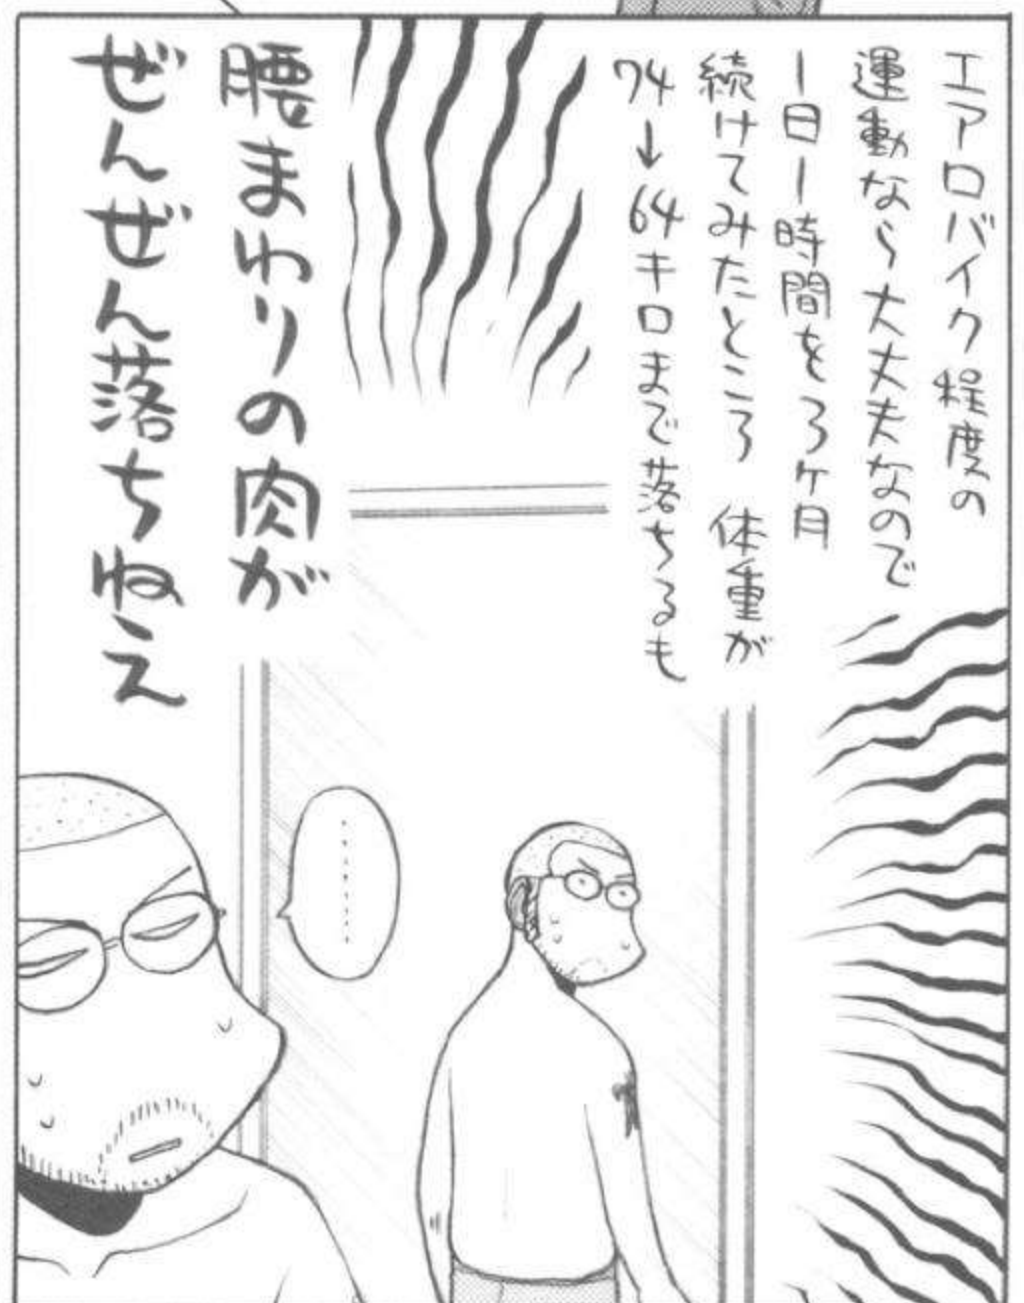 エアロバイク程度の
運動なら大丈夫なので
一日一時間を3ヶ月
続けてみたところ 体重が
74→64キロまで落ちるも
腰まわりの肉が
ぜんぜん落ちねえ
………